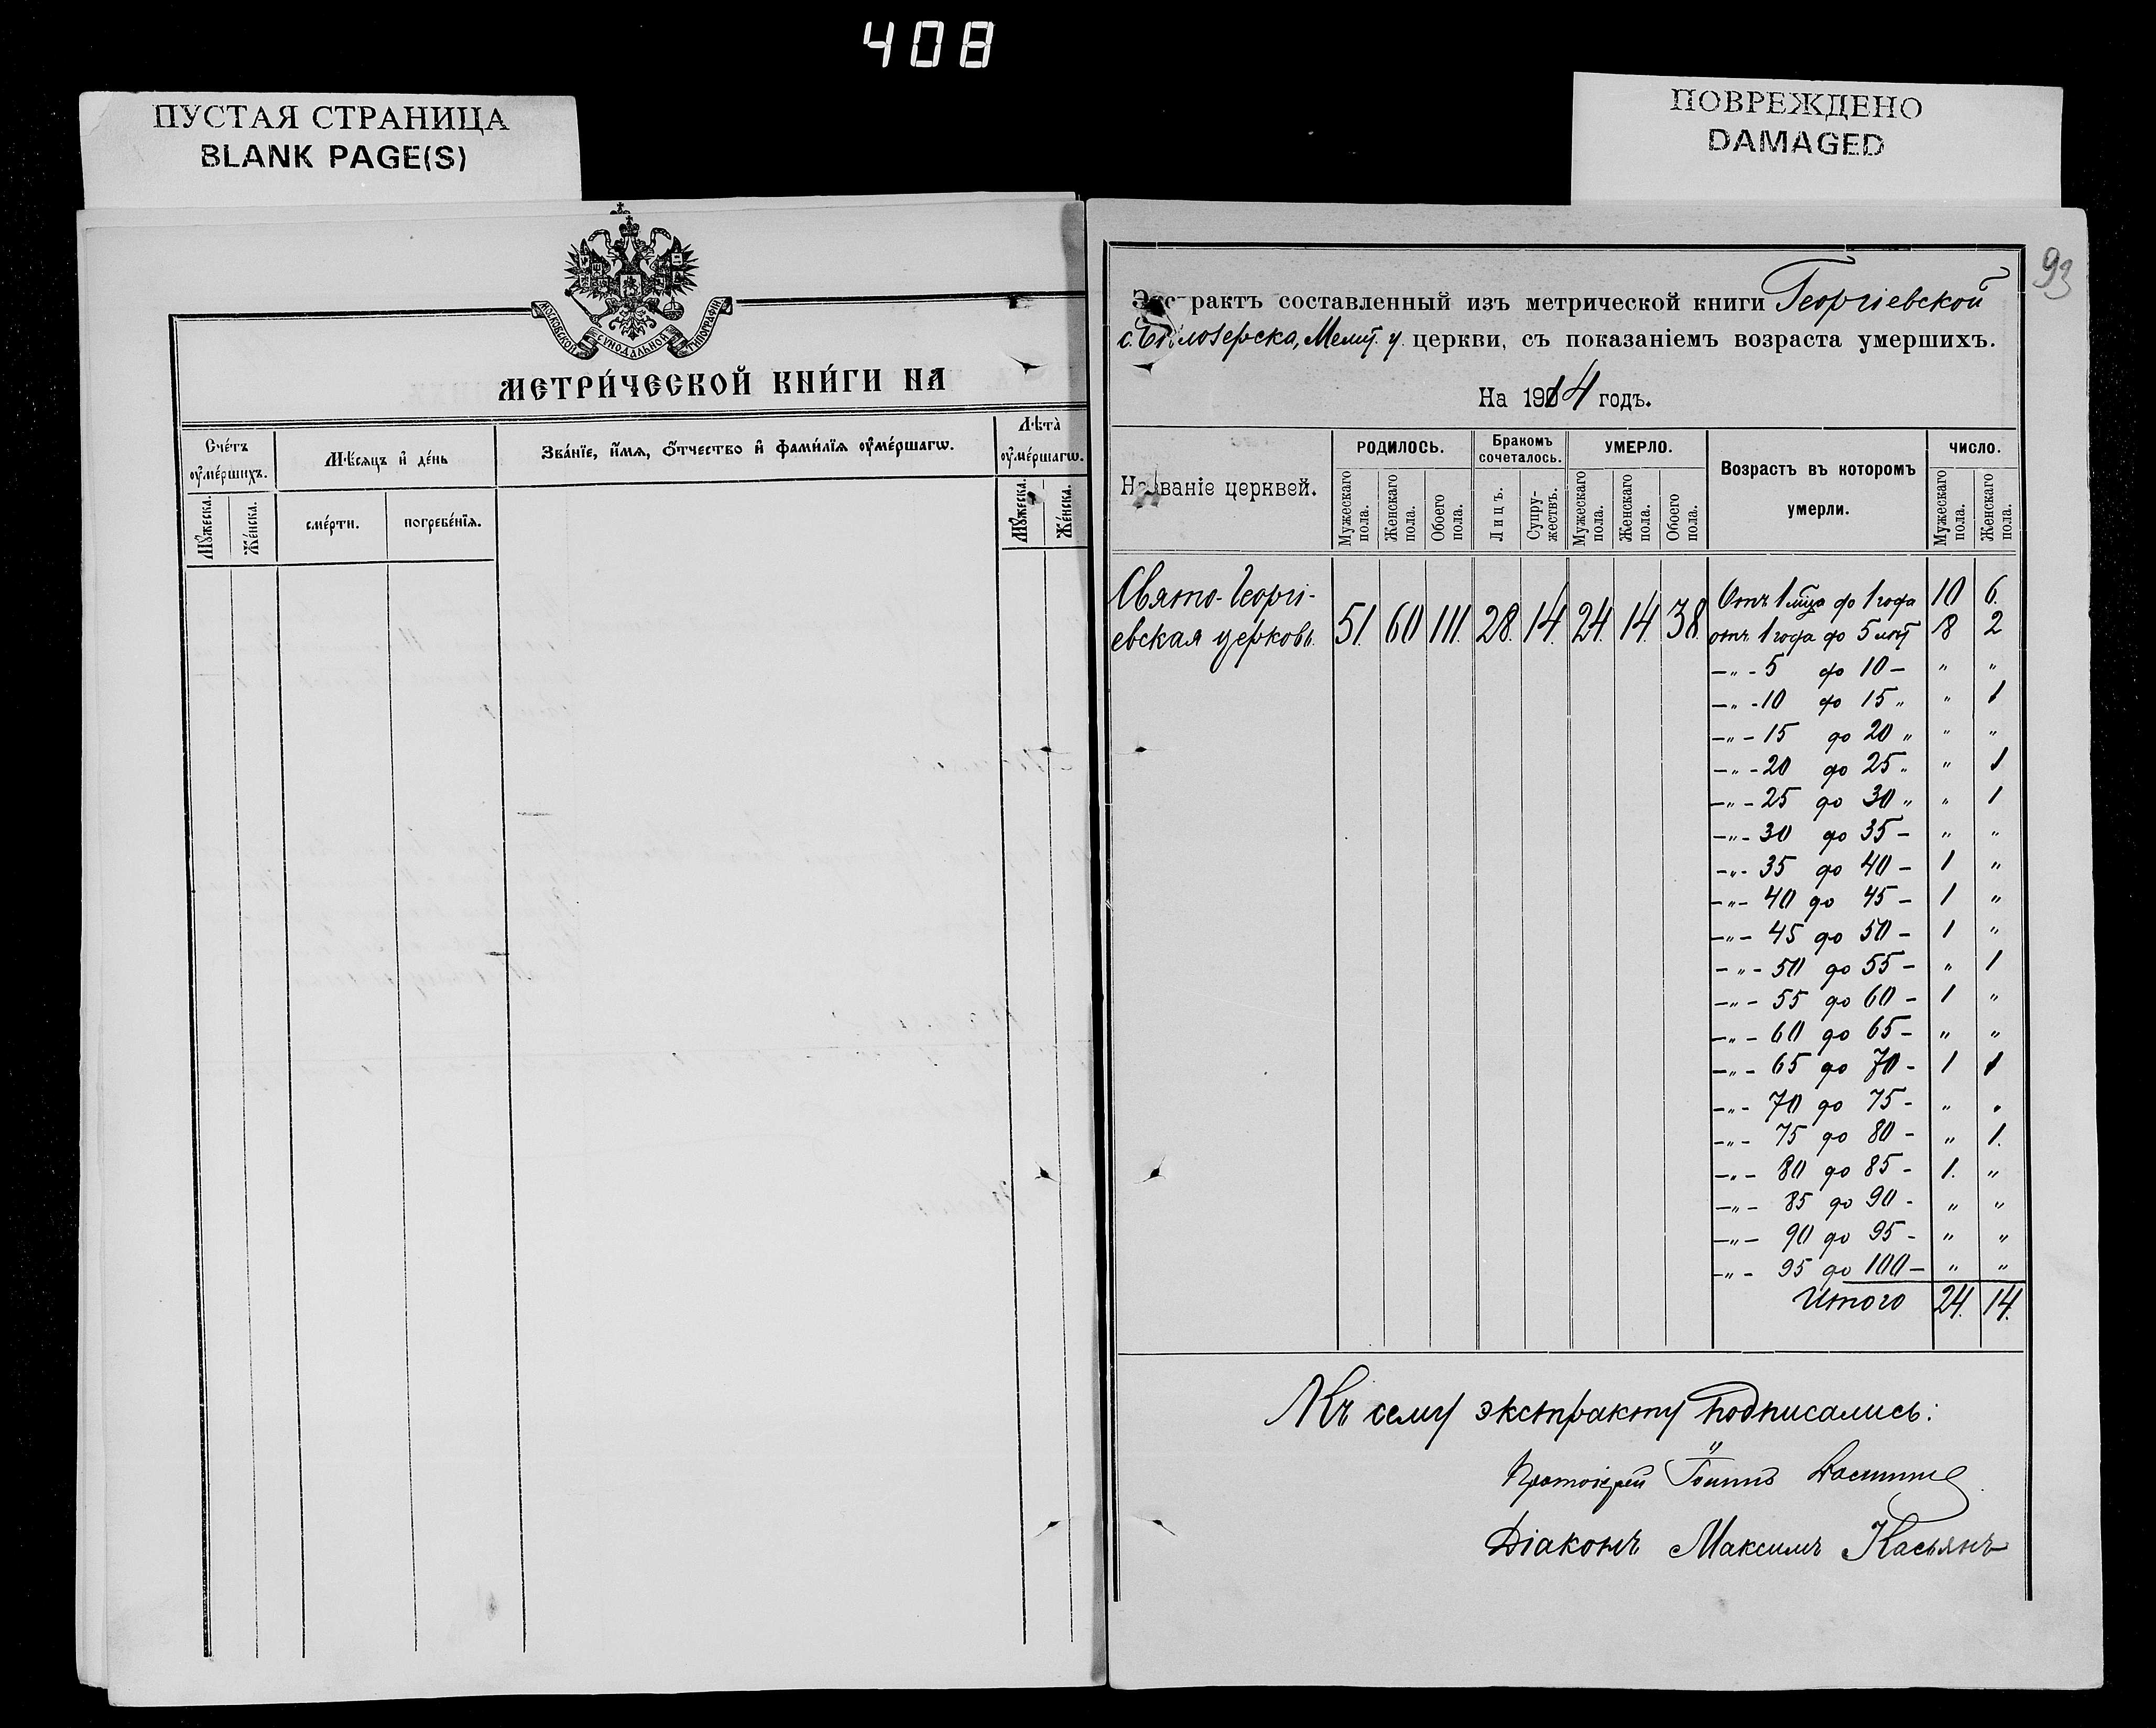 408
ПУСТАЯ СТРАНИЦА
BLANK PAGE(S)
ПОВРЕЖДЕНО
DAMAGED
МОСКОВСКОЙ СѴНОДАЛЬНОЙ ТИПОГРАФІИ
МЕТРИ́ЧЕСКОЙ КНИ́ГИ НА
Сче́тъ ᲂу҆ме́ршихъ.
Мѣсѧцъ и҆ де́нь
Зва́нїе, и҆́мѧ, ѻ҆́тчество и҆ фами́лїѧ ᲂу҆ме́ршагѡ.
Лѣта̀ ᲂу҆ме́ршагѡ.
Мꙋ́жеска.
Же́нска.
сме́рти.
погребе́нїѧ.
Мꙋ́жеска.
Же́нска.
93
Экстрактъ составленный изъ метрической книги Георгіевской
с. Бѣлозерска, Мелит. у. церкви, съ показаніемъ возраста умершихъ.
На 1914 годъ.
Названіе церквей.
РОДИЛОСЬ.
Бракомъ сочеталось.
УМЕРЛО.
Возрастъ въ которомъ умерли.
ЧИСЛО.
Мужескаго пола.
Женскаго пола.
Обоего пола.
Лицъ.
Супружествъ.
Мужескаго пола.
Женскаго пола.
Обоего пола.
Мужескаго пола.
Женскаго пола.
Свято-Георгі-
евская церковь. 51. 60 111. 28. 14. 24. 14. 38.
Отъ 1 мѣца до 1 года 10 6.
отъ 1 года до 5 лѣт 8 2
—„— 5 до 10 — „ „
—„— 10 до 15 „ „ 1
—„— 15 до 20 „ „ „
—„— 20 до 25 „ „ 1
—„— 25 до 30 „ „ 1
—„— 30 до 35 — „ „
—„— 35 до 40 — 1 „
—„— 40 до 45 — 1 „
—„— 45 до 50 — 1 „
—„— 50 до 55 — „ 1
—„— 55 до 60 — 1 „
—„— 60 до 65 — „ „
—„— 65 до 70 — 1 1
—„— 70 до 75 — „ „
—„— 75 до 80 — „ 1.
—„— 80 до 85 — 1. „
—„— 85 до 90 — „ „
—„— 90 до 95 — „ „
—„— 95 до 100 — „ „
Итого 24. 14.
Къ сему экстракту подписались:
Протоіерей Іоаннъ
Діаконъ Максимъ Касьянъ